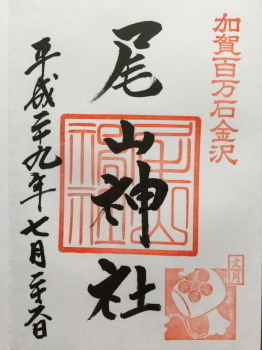 加賀百万石金沢
尾山神社
尾山神社
文月
平成二十九年七月二十六日